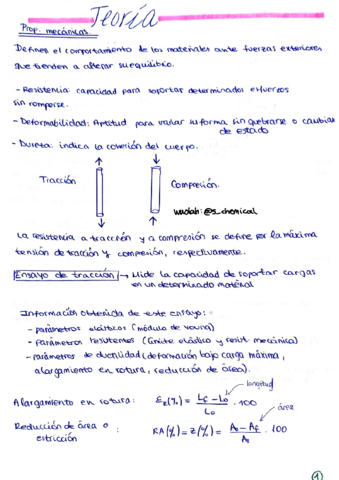 Teoría
Prop. mecánicas
Definen el comportamiento de los materiales ante fuerzas exteriores
que tienden a alterar su equilibrio.
- Resistencia: capacidad para soportar determinados esfuerzos
sin romperse.
- Deformabilidad: Aptitud para variar su forma sin quebrarse o cambiar
de estado
- Dureza: indica la cohesión del cuerpo.
Tracción
Compresión.
wuolah: @s_chemical
La resistencia a tracción y a compresión se define por la máxima
tensión de tracción y compresión, respectivamente.
Ensayo de tracción → Mide la capacidad de soportar cargas
en un determinado material
Información obtenida de este ensayo:
- parámetros elásticos (módulo de young)
- Parámetros resistentes (límite elástico y resist. mecánica)
- parámetros de ductilidad (deformación bajo carga máxima,
alargamiento en rotura, reducción de área).
longitud
Alargamiento en rotura: ε_R(%) = (L_f - L_0) / L_0 · 100
área
Reducción de área o RA(%) = Z(%) = (A_0 - A_f) / A_0 · 100
estricción
1